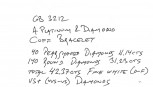 GB 3212
A Platinum & Diamond
Cuff Bracelet
40 Pearshaped Diamonds 11.14cts
140 Round Diamonds 31.25cts
Total 42.39cts Fine White (D-F)
VS+ (VVS) Diamonds